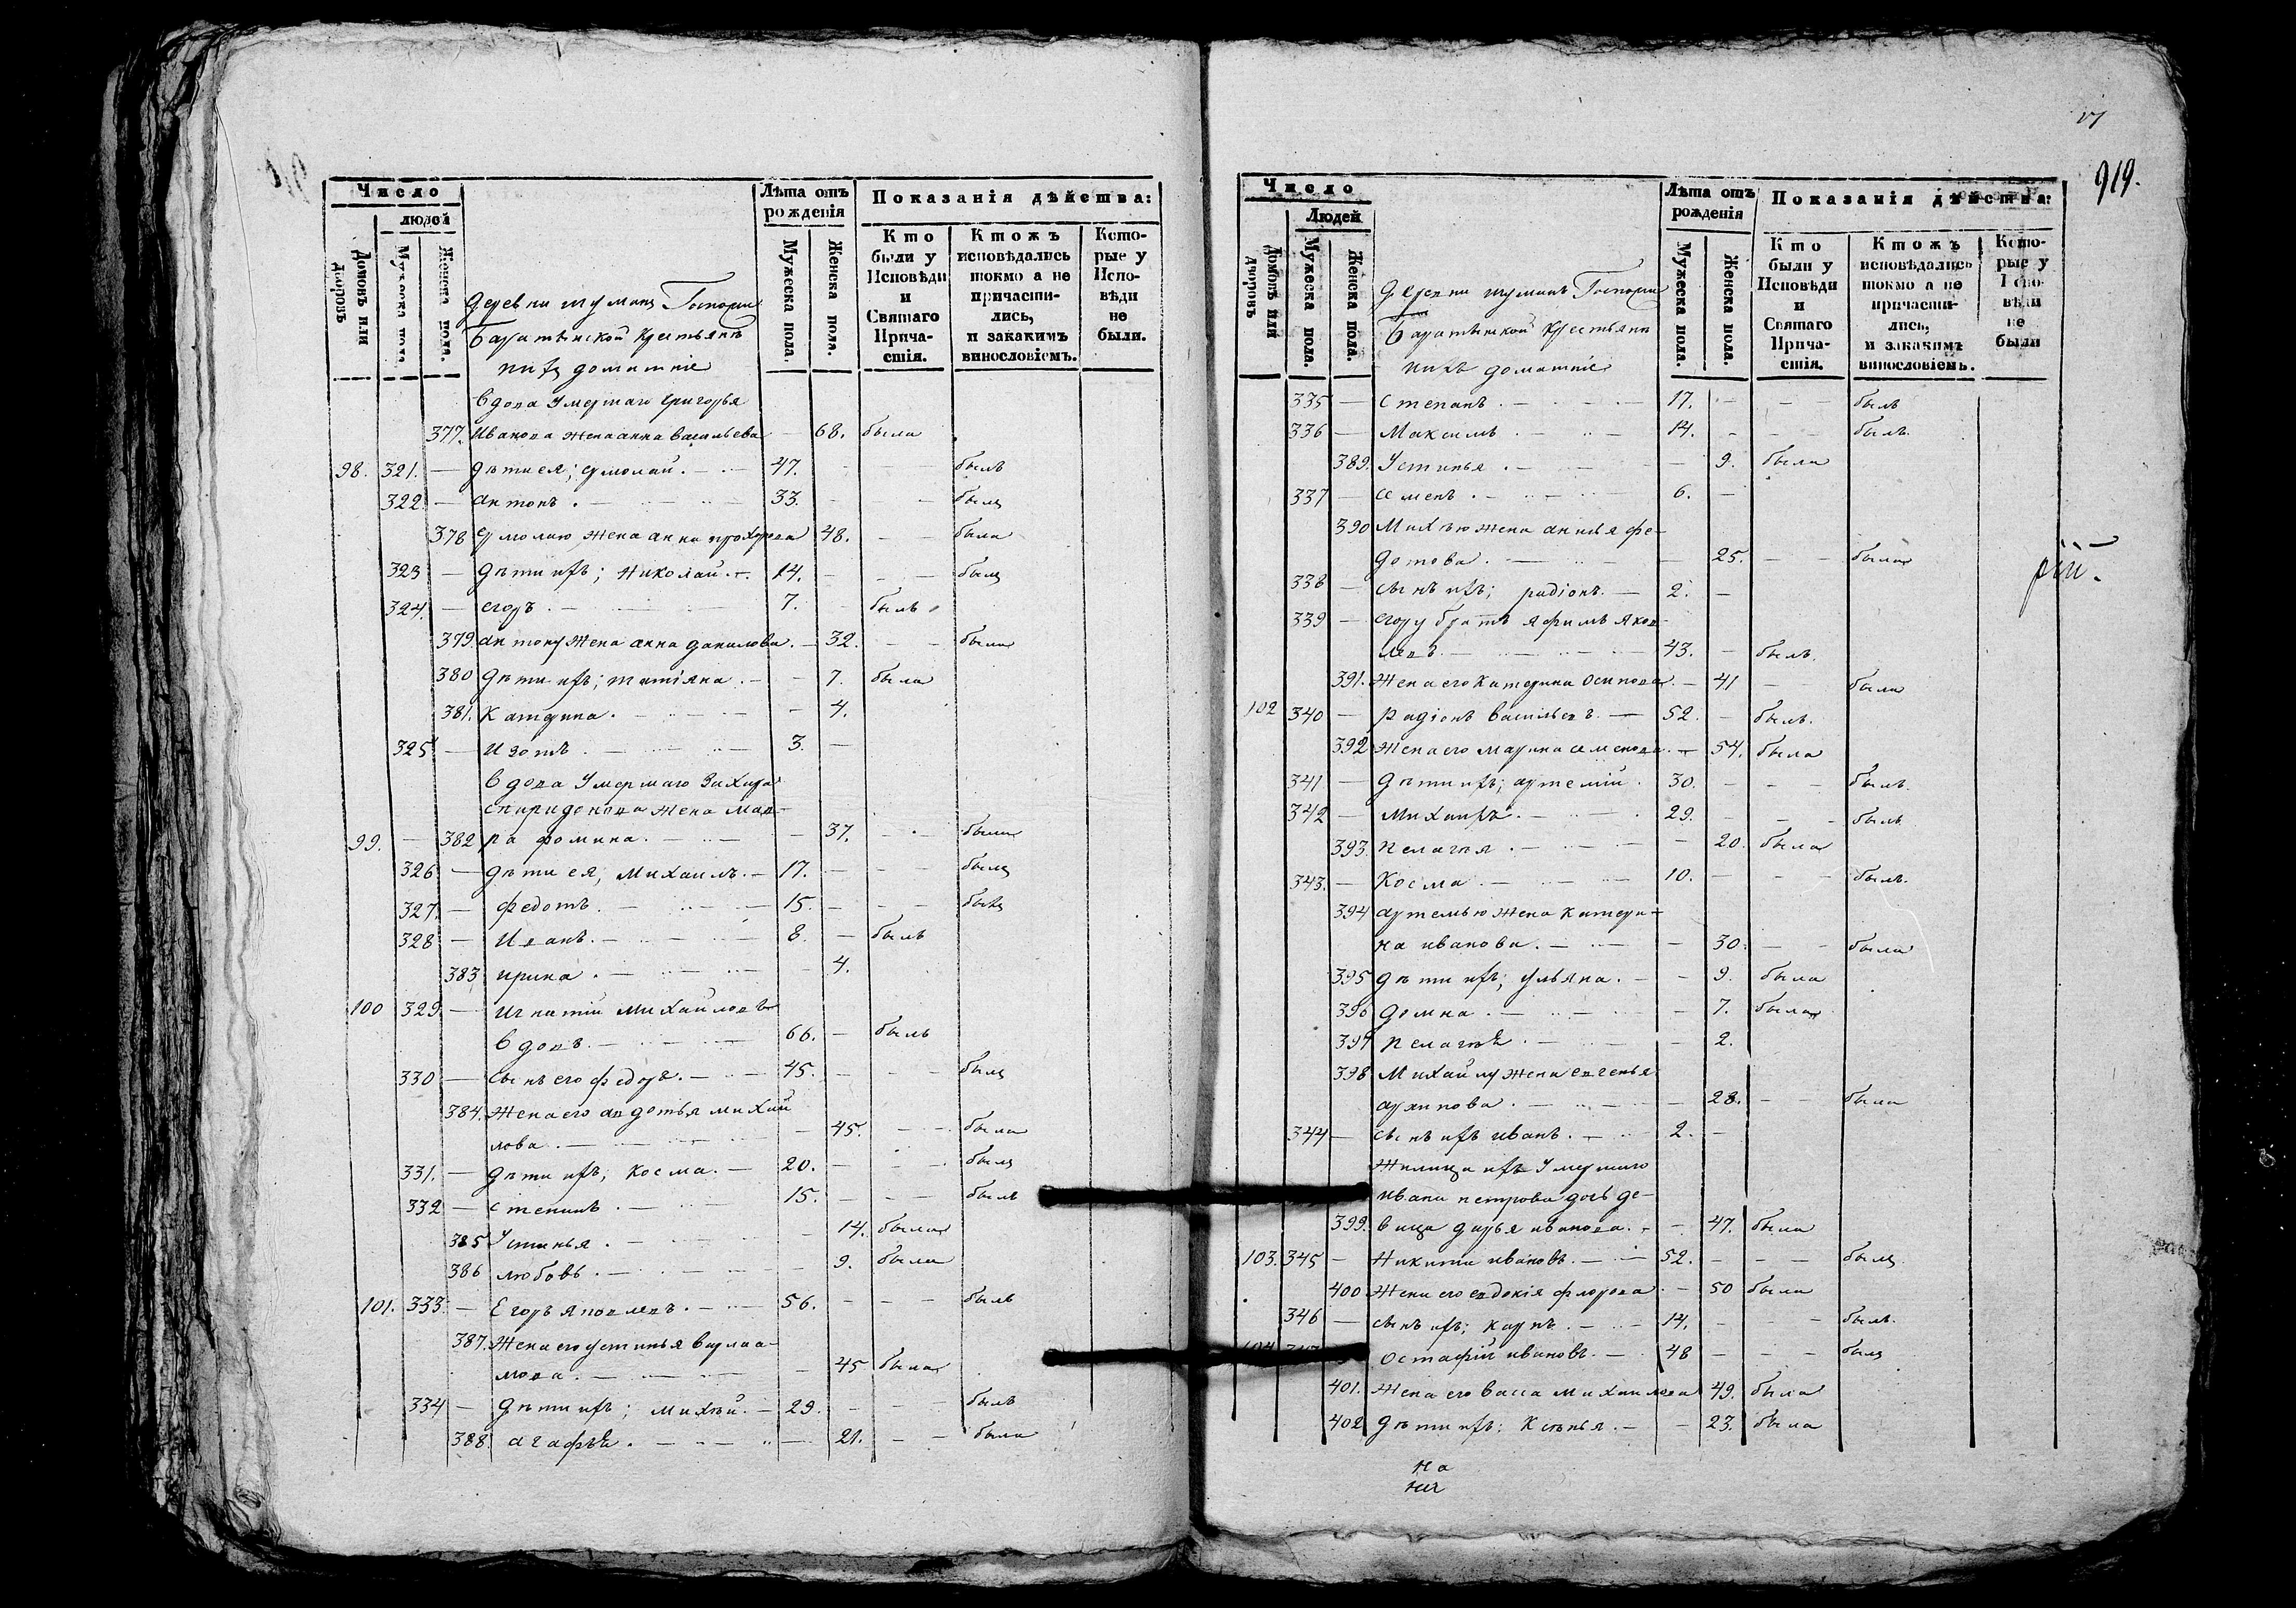 Число
людей
Домовъ или дворовъ
Мужеска пола.
Женска пола.
Лѣта отъ рожденія
Мужеска пола.
Женска пола.
Показанія дѣйства:
Кто были у Исповѣди и Святаго Причастія.
Ктожъ исповѣдались токмо а не причастились, и закакимъ винословіемъ.
Которые у Исповѣди не были.
деревни Госпожи
Крестьяне
ихъ домашніе
вдова Умершаго Григорья
377. Иванова жена анна васильева — 68. была
98. 321. — дѣти ея; ермолай. — 47. — былъ
322. — антонъ. — 33. — былъ
378 ермолаю жена анна прохорова 48. — была
323 — дѣти ихъ; Николай. — 14. — былъ
324. — егоръ. — 7. — былъ
379. антону жена анна данилова. — 32. — была
380 дѣти ихъ; татіяна. — 7. была
381. Катерина. — 4.
325 — Изотъ. — 3. —
вдова Умершаго Захара
спиридонова жена мав-
99. — 382 ра фомина. — 37. — была
326 — дѣти ея, Михаилъ. — 17. — былъ
327. — федотъ. — 15. — былъ
328 — Иванъ. — 8. — былъ
383 ирина. — 4.
100 329. — Игнатій Михайловъ
вдовъ. — 66. — былъ
330 — сынъ его федоръ. — 45. — былъ
384. жена его авдотья михай
лова. — 45. — была
331. — дѣти ихъ; Косма. — 20. — былъ
332 — степанъ. — 15. — былъ
385 Устинья. — 14. была
386 любовь. — 9. была
101. 333. — Егоръ яковлевъ. — 56. — былъ
387. жена его устинья варлаа-
мова. — 45 была
334 — дѣти ихъ; михѣй. — 29. — былъ
388. агафья. — 21. — была
919.
Число
Людей
Домовъ или дворовъ
Мужеска пола.
Женска пола.
Лѣта отъ рожденія
Мужеска пола.
Женска пола.
Показанія дѣйства:
Кто были у Исповѣди и Святаго Причастія.
Ктожъ исповѣдались токмо а не причастились, и закакимъ винословіемъ.
Которые у Исповѣди не были
Госпожи
Крестьяне
ихъ домашніе
335 — степанъ. — 17. — былъ
336 — Максимъ. — 14. — былъ.
389. Устинья. — 9. была
337 — семенъ. — 6. —
390 Михѣю жена анисья фе-
дотова. — 25. — была
338 — сынъ ихъ; радіонъ. — 2. —
339 — егору братъ яфимъ яков-
левъ. — 43. — былъ.
391. жена его катерина осипова. — 41 — была
102 340 — радіонъ васильевъ. — 52. — былъ.
392 жена его марина семенова. — 54. была
341 — дѣти ихъ; артемій. 30. — былъ.
342 — Михаилъ. — 29. — былъ
393. пелагея. — 20. была
343. — Косма. — 10. — былъ.
394 артемью жена катери-
на иванова. — 30. — была
395 дѣти ихъ; ульяна. — 9. была
396 домна. — 7. была
397 пелагея. — 2.
398 Михайлу жена евгенья
архипова. — 28. — была
344 — сынъ ихъ иванъ. — 2. —
умершаго
ивана петрова дочь де-
399. вица дарья иванова. — 47. была
103. 345 — Никита ивановъ. — 52. — былъ
400 жена его евдокія флорова — 50 была
346 — сынъ ихъ; карпъ. — 14. — былъ.
104 347 остафій ивановъ. — 48 — былъ
401. жена его васса михайлова 49. была
402 дѣти ихъ; Ксенья. — 23. была